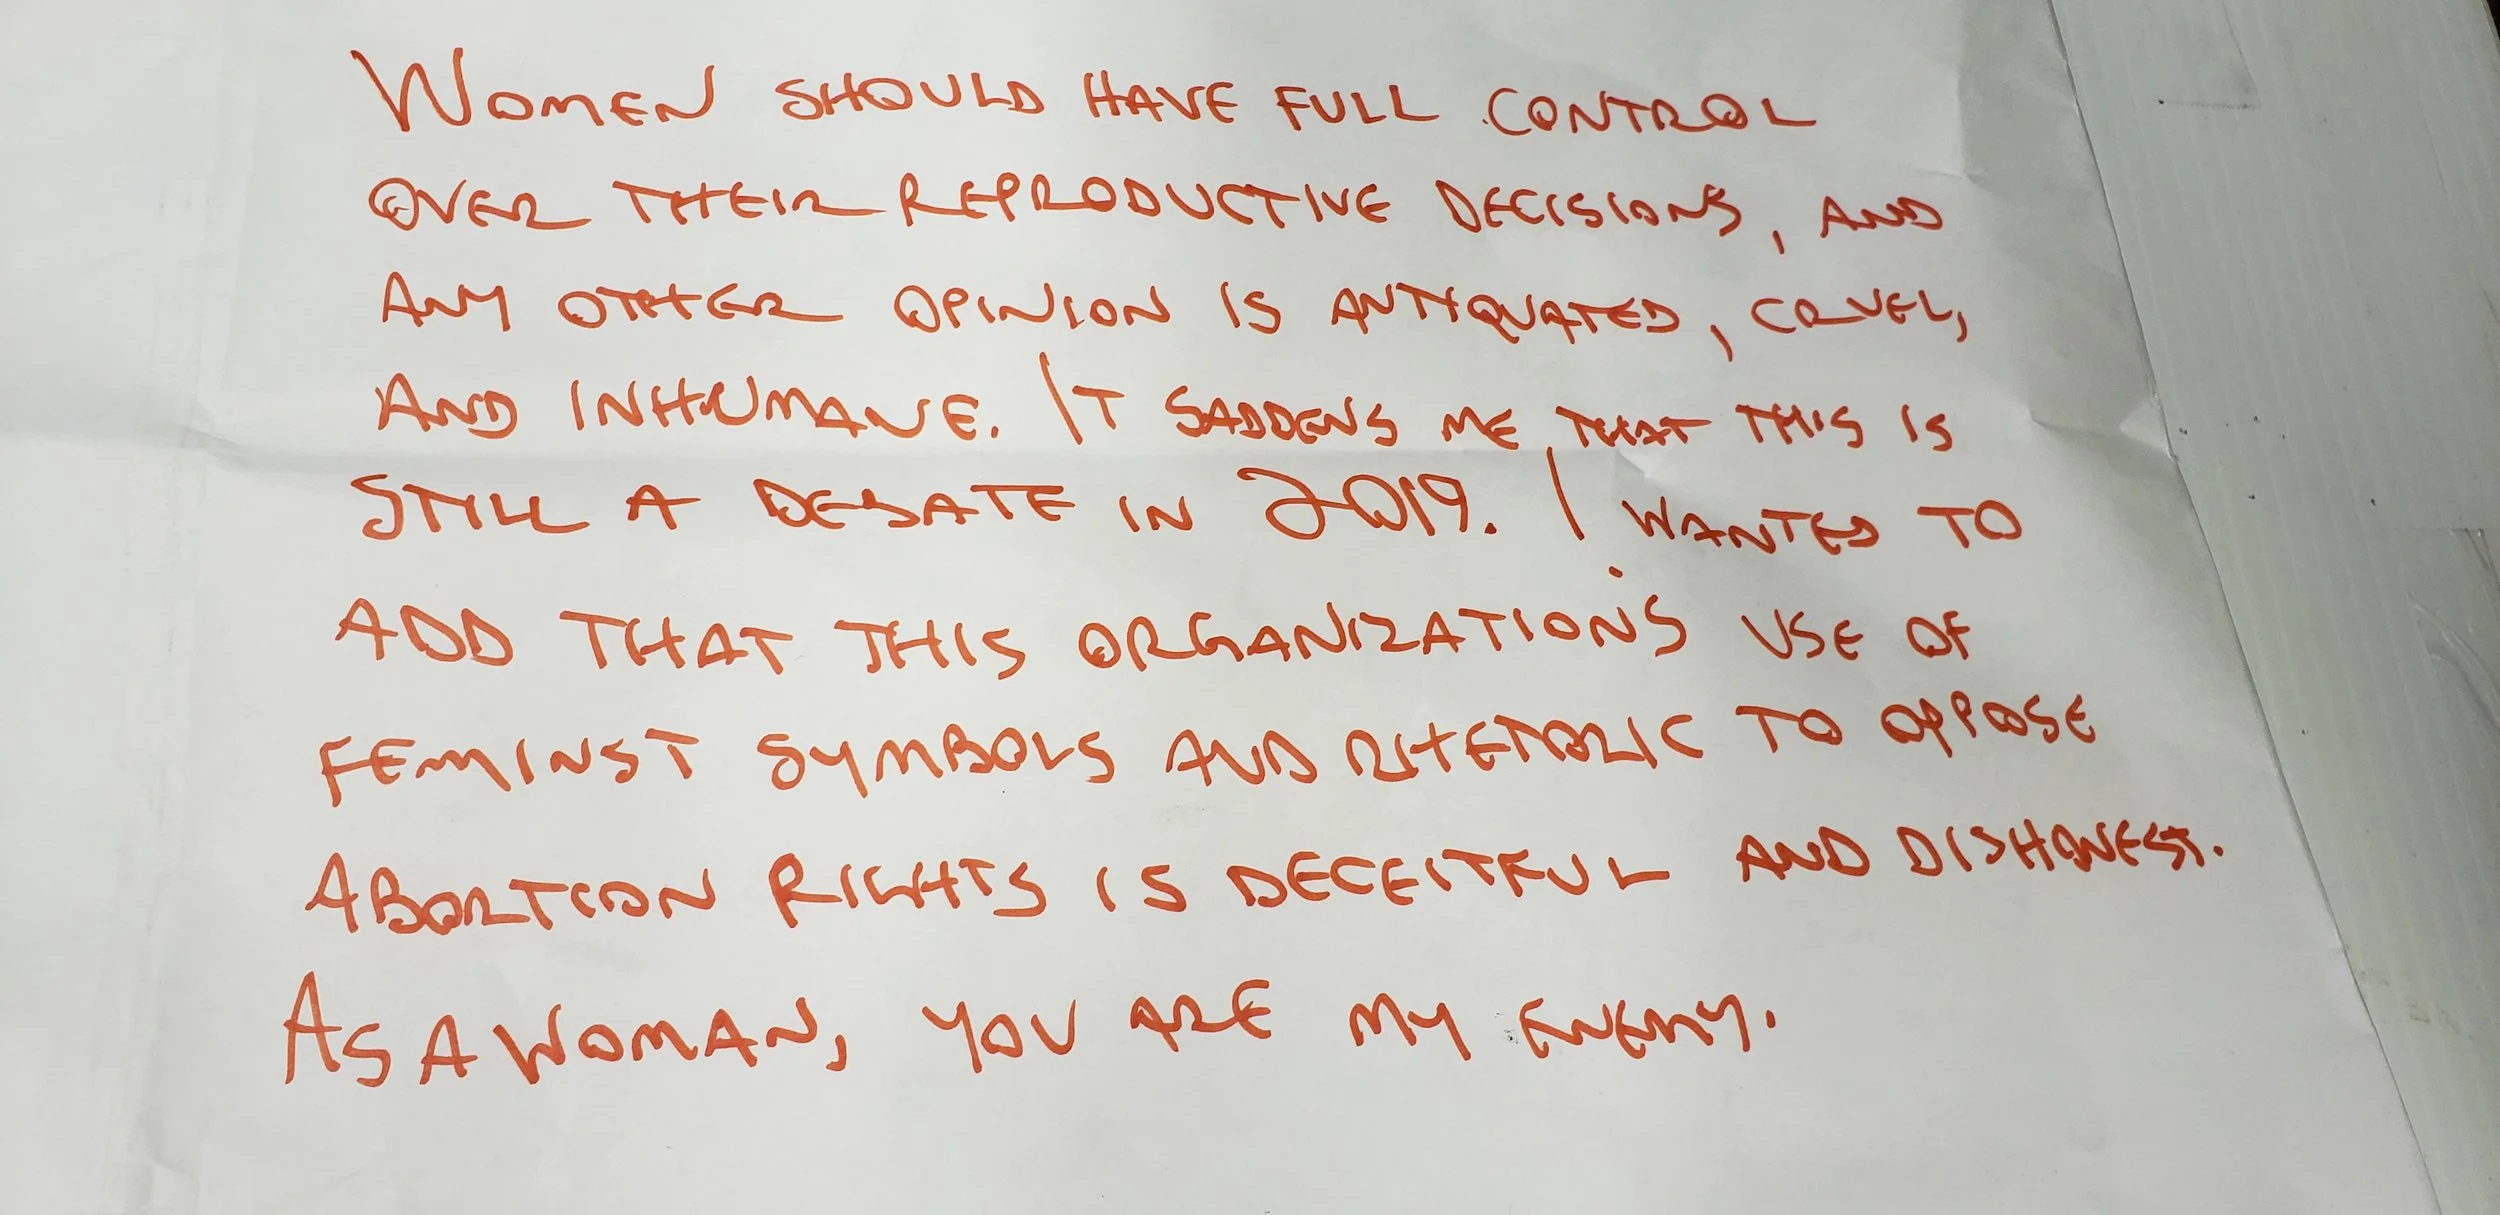 WOMEN SHOULD HAVE FULL CONTROL
OVER THEIR REPRODUCTIVE DECISIONS, AND
ANY OTHER OPINION IS ANTIQUATED, CRUEL,
AND INHUMANE. IT SADDENS ME THAT THIS IS
STILL A DEBATE IN 2019. I WANTED TO
ADD THAT THIS ORGANIZATIONS USE OF
FEMINST SYMBOLS AND RHETORIC TO OPPOSE
ABORTION RIGHTS IS DECEITFUL AND DISHONEST.
AS A WOMAN, YOU ARE MY ENEMY.